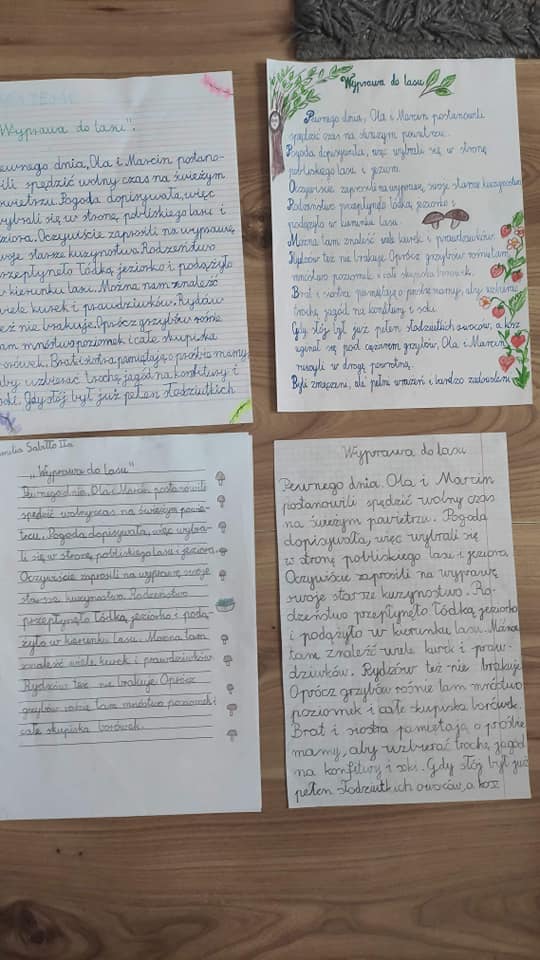 "Wyprawa do lasu".
Pewnego dnia, Ola i Marcin postano-
wili spędzić wolny czas na świeżym
powietrzu. Pogoda dopisywała, więc
wybrali się w stronę pobliskiego lasu i
jeziora. Oczywiście zaprosili na wyprawę
swoje starsze kuzynostwo. Rodzeństwo
przepłynęło łódką jeziorko i podążyło
w kierunku lasu. Można nam znaleźć
wiele kurek i prawdziwków. Rydzów
też nie brakuje. Oprócz grzybów rośnie
tam mnóstwo poziomek i całe skupiska
borówek. Brat i siostra, pamiętają o prośbie mamy,
aby uzbierać trochę jagód na konfitury i
soki. Gdy stój był już pełen słodziutkich
Wyprawa do lasu
Pewnego dnia, Ola i Marcin postanowili
spędzić czas na świeżym powietrzu.
Pogoda dopisywała, więc wybrali się w stronę
pobliskiego lasu i jeziora.
Oczywiście zaprosili na wyprawę, swoje starsze kuzynostwo
Rodzeństwo przepłynęło łódką, jeziorko i
podążyło w kierunku lasu.
Można tam znaleść wiele kurek i prawdziwków.
Rydzów też nie brakuje. Oprócz grzybów rośnie tam,
mnóstwo poziomek i całe skupiska borówek.
Brat i siostra pamiętają o prośbie mamy, aby uzbierać
trochę jagód na konfitury i soki.
Gdy stój był już pełen słodziutkich owoców, a kosz
uginał się pod ciężarem grzybów, Ola i Marcin
ruszyli w drogę powrotną.
Byli zmęczeni, ale pełni wrażeń i bardzo zadowoleni
Sabatto IIa
"Wyprawa do lasu"
Pewnego dnia, Ola i Marcin postanowili
spędzić wolny czas na świeżym powie-
trzu. Pogoda dopisywała, więc wybra-
li się w stronę pobliskiego lasu i jeziora.
Oczywiście zaprosili na wyprawę swoje
starsze kuzynostwo. Rodzeństwo
przepłynęło łódką jeziorko i podą-
żyło w kierunku lasu. Można tam
znaleźć wiele kurek i prawdziwków.
Rydzów też nie brakuje. Oprócz
grzybów rośnie tam mnóstwo poziomek i
całe skupiska borówek.
Wyprawa do lasu
Pewnego dnia Ola i Marcin
postanowili spędzić wolny czas
na świeżym powietrzu. Pogoda
dopisywała, więc wybrali się
w stronę pobliskiego lasu i jeziora
Oczywiście zaprosili na wyprawę
swoje starsze kuzynostwo. Ro-
dzeństwo przepłynęło łódką jeziorko
i podążyło w kierunku lasu. Można
tam znaleźć wiele kurek i praw-
dziwków. Rydzów też nie brakuje
Oprócz grzybów rośnie tam mnóstwo
poziomek i całe skupiska borówek.
Brat i siostra pamiętają o prośbie
mamy, aby uzbierać trochę jagód
na konfitury i soki. Gdy stój był już
pełen słodziutkich owoców, a kosz